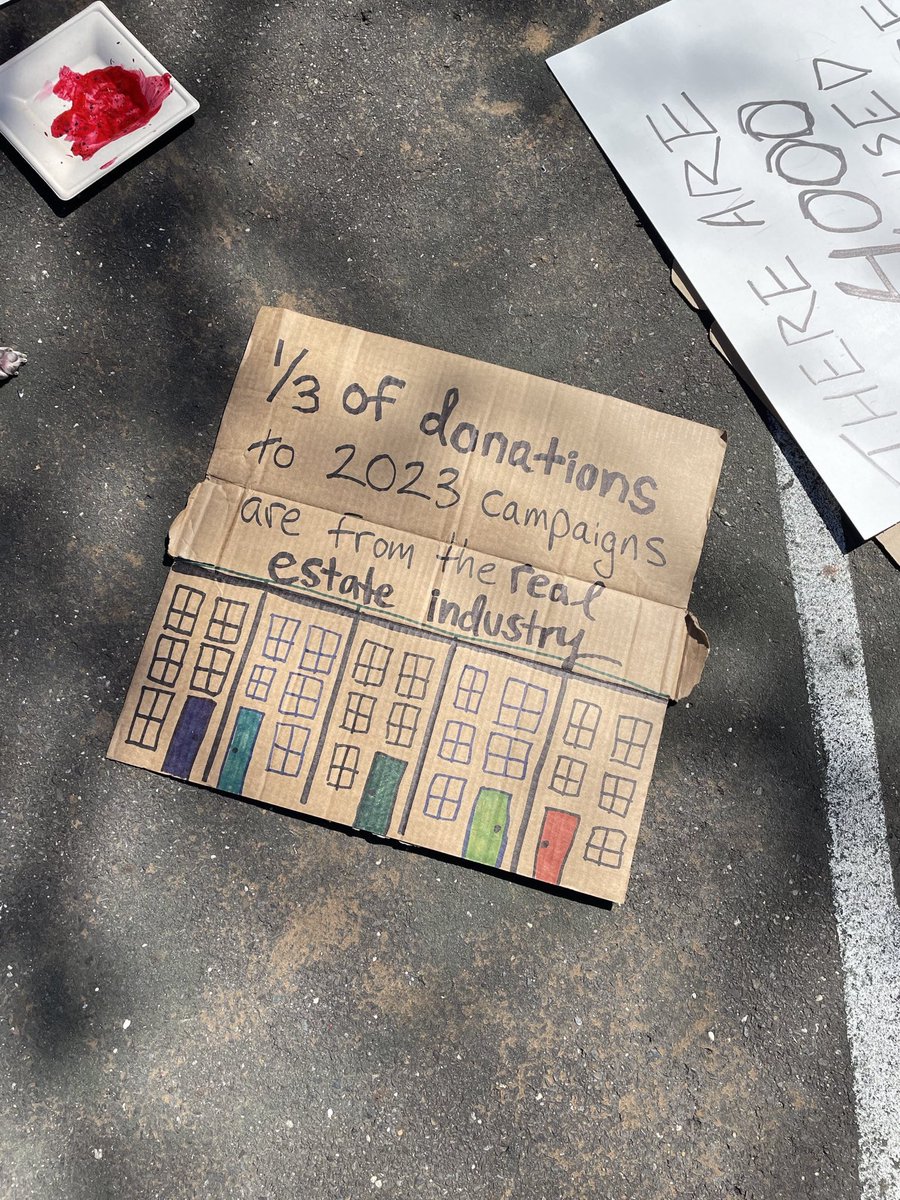 1/3 of donations
to 2023 campaigns
are from the real
estate industry
THERE ARE
4000